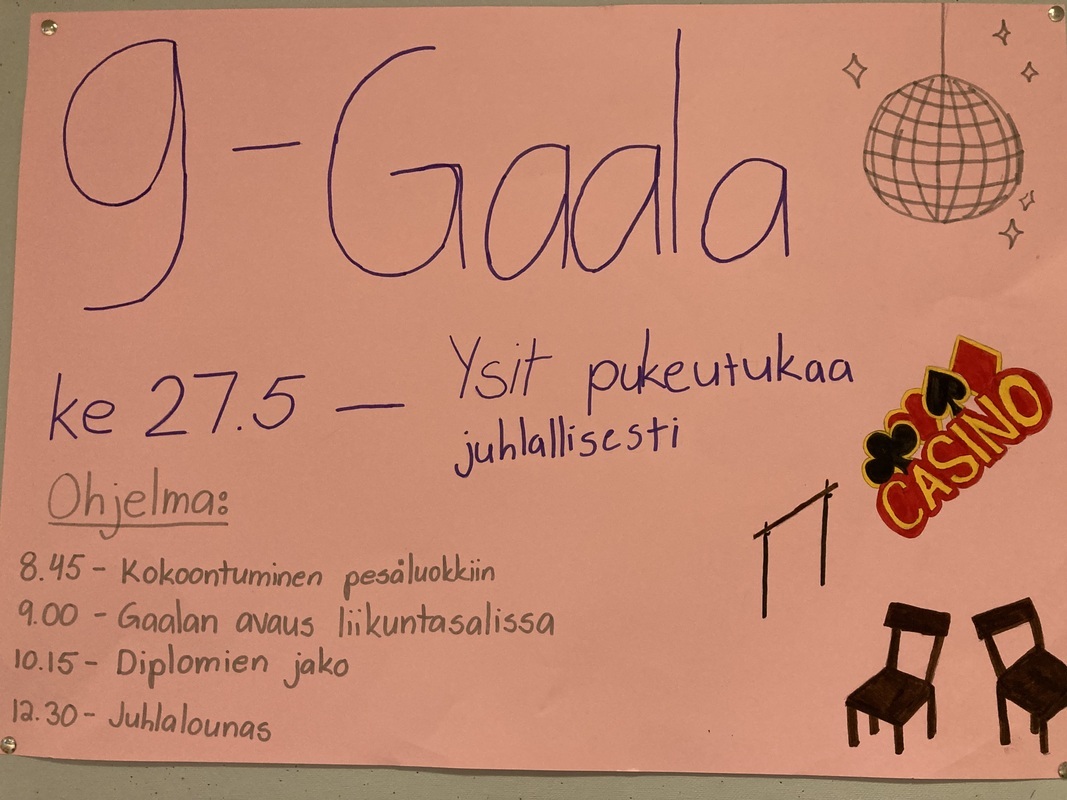 9-Gaala
ke 27.5 — Ysit pukeutukaa
juhlallisesti
CASINO
Ohjelma:
8.45 - Kokoontuminen pesäluokkiin
9.00 - Gaalan avaus liikuntasalissa
10.15 - Diplomien jako
12.30 - Juhlalounas